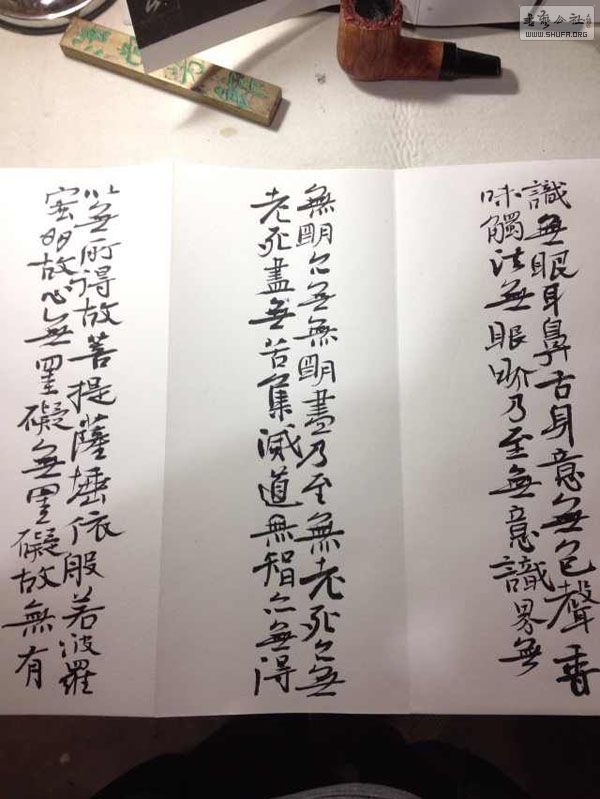 識無眼耳鼻舌身意無色聲香
味觸法無眼界乃至無意識界無
無明亦無無明盡乃至無老死亦無
老死盡無苦集滅道無智亦無得
以無所得故菩提薩埵依般若波羅
蜜多故心無罣礙無罣礙故無有
書藝公社
WWW.SHUFA.ORG